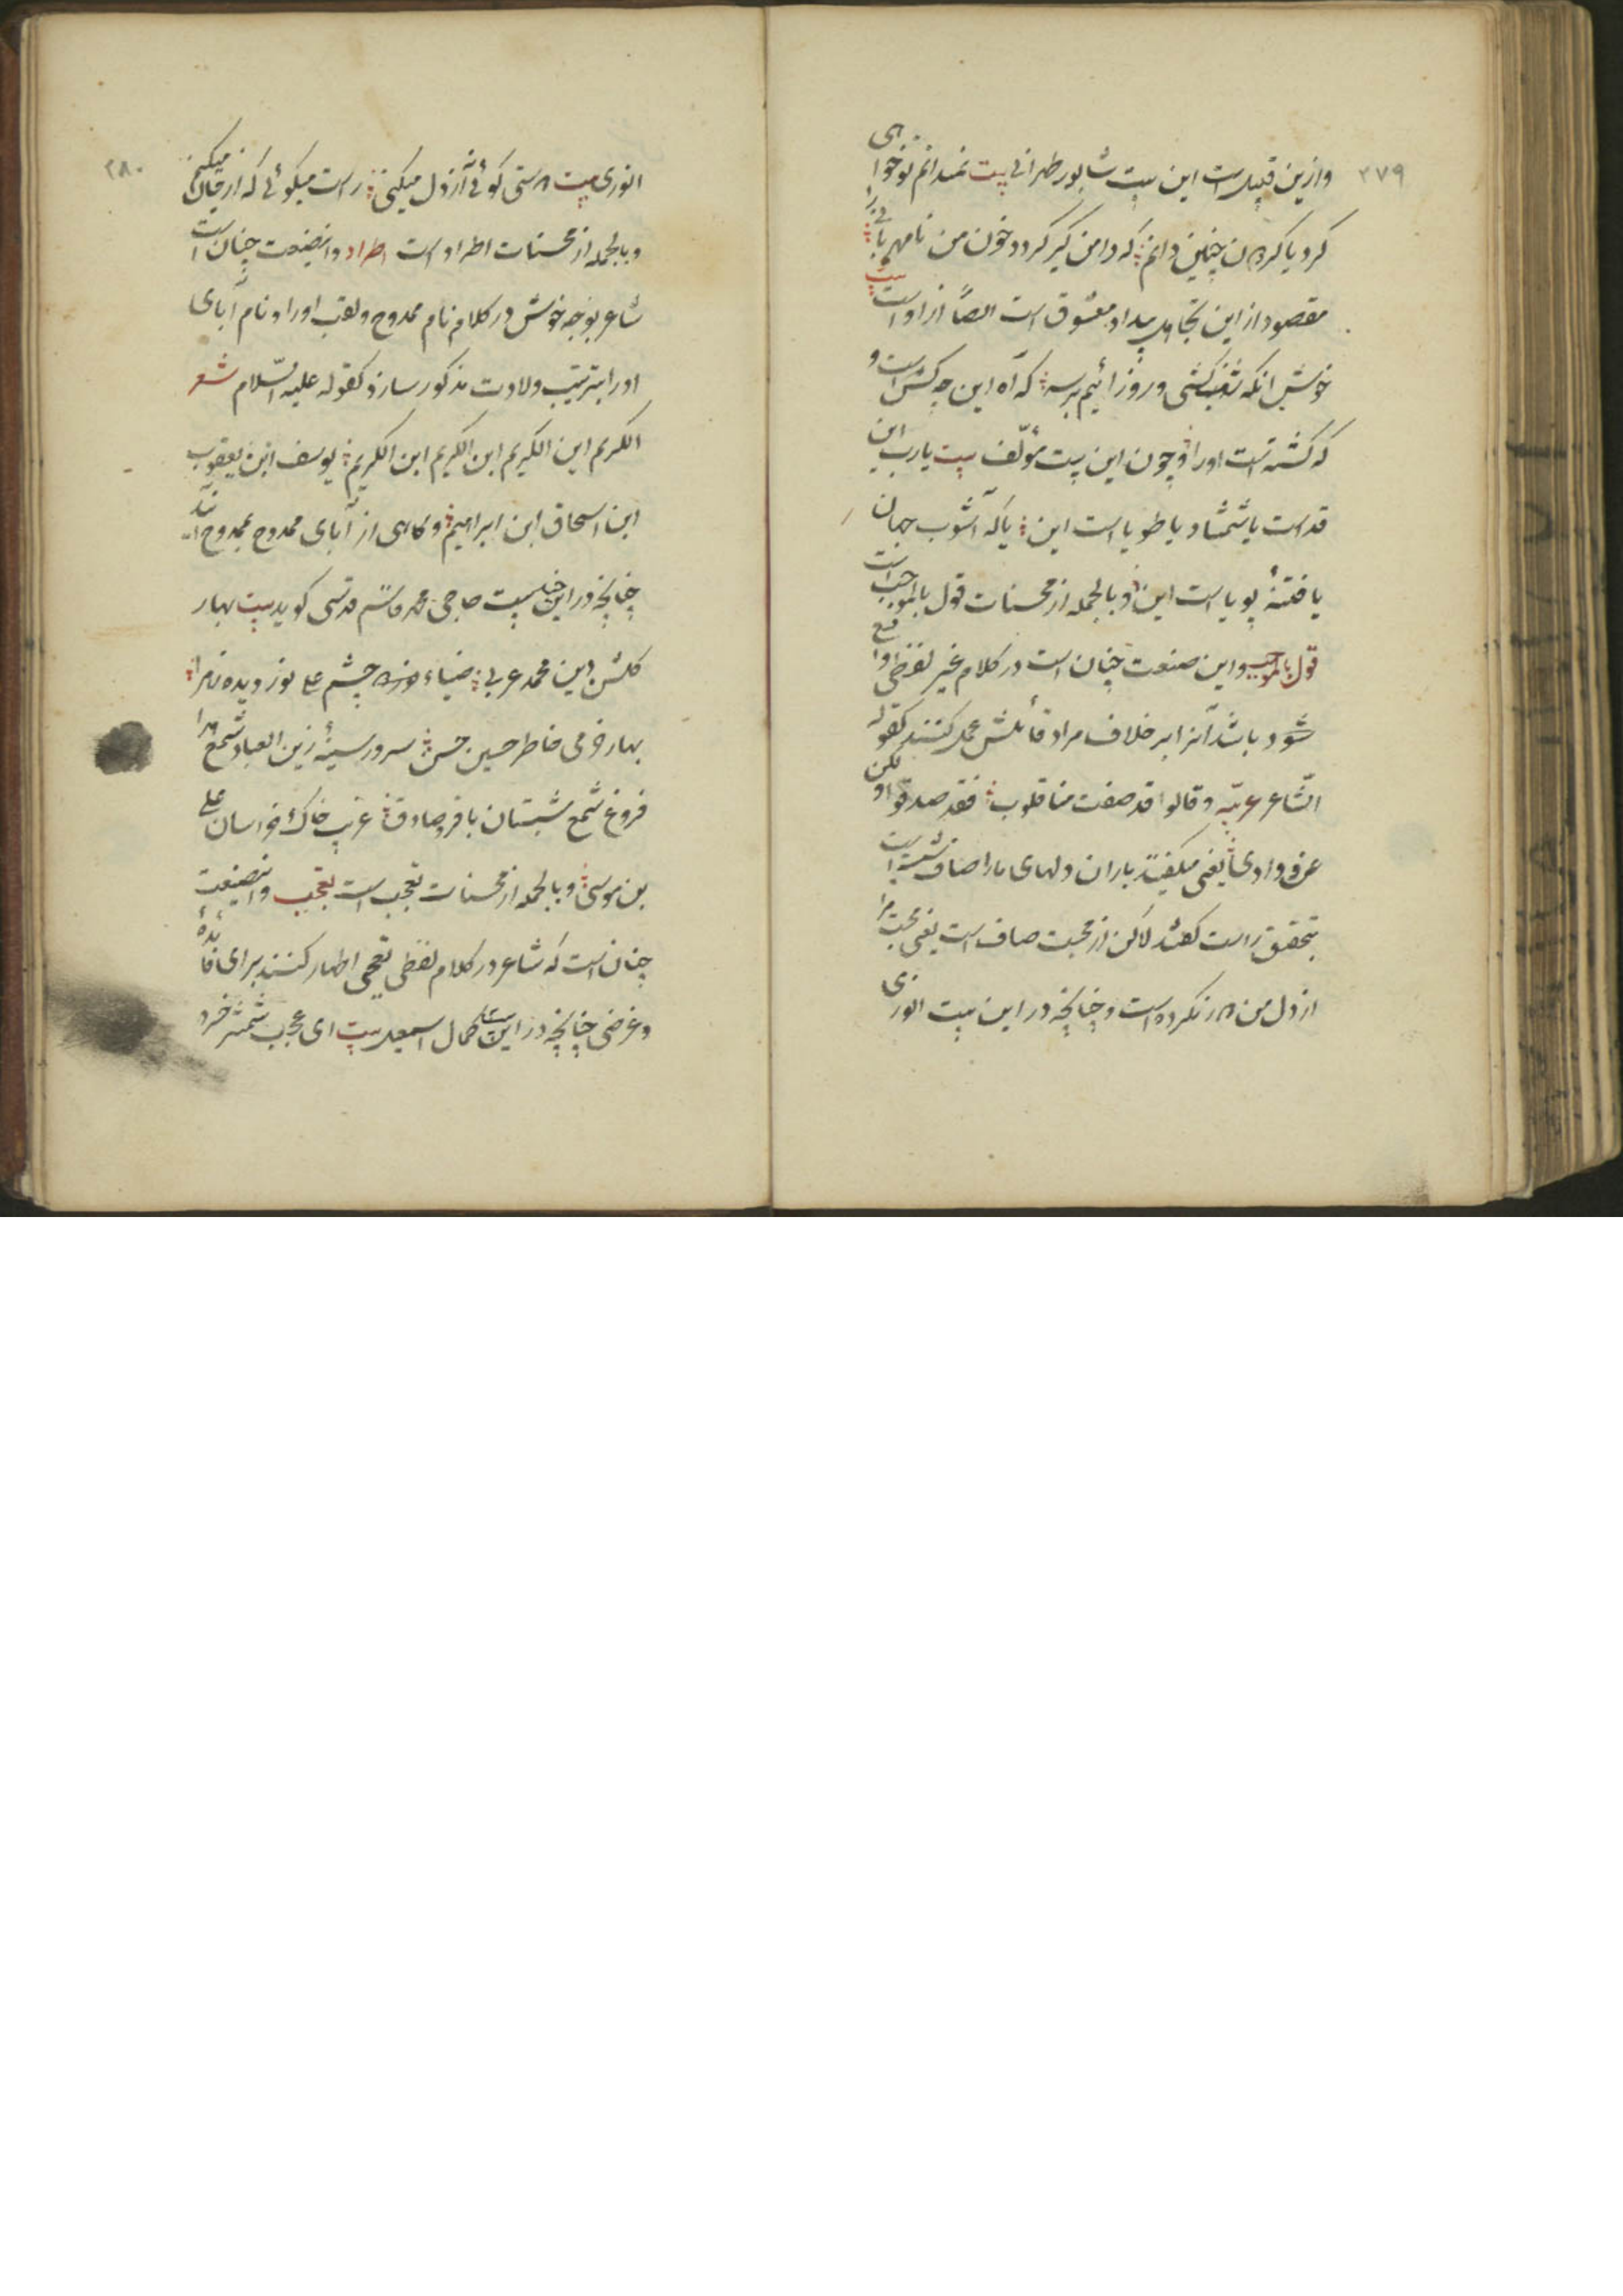 ۲۷۹
وازین قبیل است این بیت شاپور طهرانی بیت نمیدانم تو خواهی
کرد یا کردون چنین دانم که دامن گیر گردد خون من نامهربانی را
مقصود از این تجاهل بیداد معشوق است ایضاً از اوست بیت
خوش آنکه شب کشی و روز آئیم بر سر که آه این چه کس است و
که کشته است او را و چون این بیت مؤلف بیت یارب این
قد است یا شمشاد یا طوبا است این یا که آشوب جهان
یا فتنهٔ پویا است این و بالجمله از محسنات قول بالموجب است
قول بالموجب و این صنعت چنان است در کلام غیر لفظی واقع
شود باشد آنرا بر خلاف مراد قائلش حمل کنند کقوله
الشاعر عربیّه و قالوا قد صفت منا قلوب فقد صدقوا و لکن
عن ودادی یعنی میگفتند یاران دلهای ما را صاف شده است
بتحقیق راست گفتند لاکن از محبت صاف است یعنی محبت مرا
از دل من در نکرده است و چنانچه در این بیت انوری
۲۸۰
انوری بیت دستی گوئی نه از دل میکنی راست میگوئی که از جان میکنی
و بالجمله از محسنات اطراد است اطراد و اینصنعت چنان است
شاعر بوجه خوش در کلام نام ممدوح و لقب او را و نام آبای
او را بترتیب ولادت مذکور سازد کقوله علیه السّلام شعر
الکریم ابن الکریم ابن الکریم ابن الکریم یوسف ابن یعقوب
ابن اسحاق ابن ابراهیم و گاهی از آبای ممدوح بممدوح آیند
چنانچه در این بیت حاجی محمد قدسی گوید بیت بهار
گلشن دین محمد عربی ضیاء چشم علی نور دیده زهرا
بهار خرمی خاطر حسین حسن سرور سینهٔ زین العباد شمع هدا
فروغ شمع شبستان باقر و صادق غریب خاک خراسان علی
بن موسی و بالجمله از محسنات تعجب است تعجب و اینصنعت
چنان است که شاعر در کلام لفظی تعجبی اظهار کنند برای فائدهٔ
و غرضی چنانچه در این بیت کمال اسمعیل بیت ای عجب شمشیر خرد